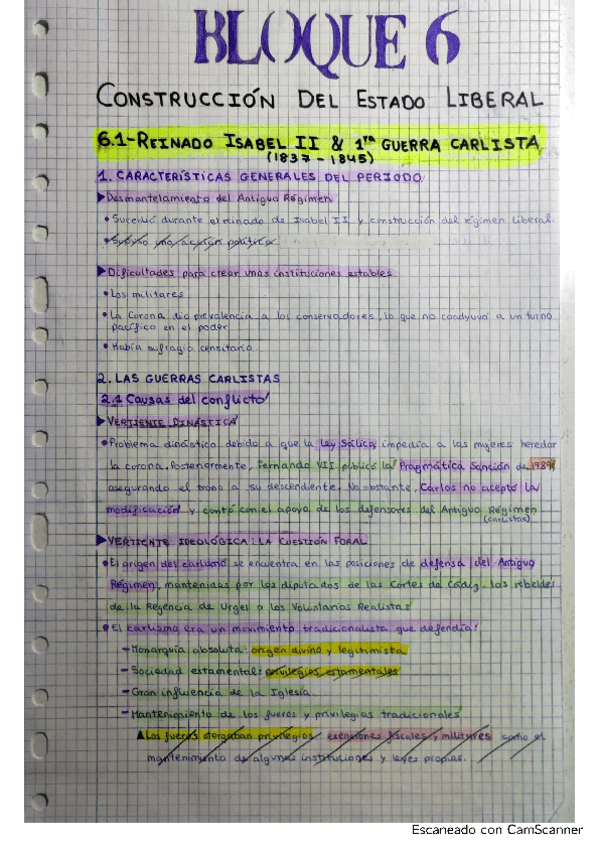 BLOQUE 6
CONSTRUCCIÓN DEL ESTADO LIBERAL
6.1-REINADO ISABEL II & 1ra GUERRA CARLISTA
(1837-1845)
1. CARACTERÍSTICAS GENERALES DEL PERIODO
▶Desmantelamiento del Antiguo Régimen
• Sucedió durante el reinado de Isabel II y construcción del régimen liberal.
▶Dificultades para crear unas instituciones estables
• Los militares
• La Corona dio prevalencia a los conservadores, lo que no coadyuvó a un turno
pacífico en el poder
• Había sufragio censitario.
2. LAS GUERRAS CARLISTAS
2.1 Causas del conflicto
▶VERTIENTE DINÁSTICA
• Problema dinástico debido a que la Ley Sálica impedía a las mujeres heredar
la corona. Posteriormente, Fernando VII publicó la Pragmática Sanción de
asegurando el trono a su descendiente. No obstante, Carlos no aceptó la
modificación y contó con el apoyo de los defensores del Antiguo Régimen
(carlistas)
▶VERTIENTE IDEOLÓGICA: LA CUESTIÓN FORAL
• El origen del carlismo se encuentra en las posiciones de defensa del Antiguo
Régimen, mantenidas por los diputados de las Cortes de Cádiz, los rebeldes
de la Regencia de Urgel o los Voluntarios Realistas
• El carlismo era un movimiento tradicionalista que defendía:
- Monarquía absoluta: origen divino y legitimista
- Sociedad estamental: privilegios estamentales
- Gran influencia de la Iglesia.
- Mantenimiento de los fueros y privilegios tradicionales
▲Los fueros otorgaban privilegios exenciones fiscales y militares como el
mantenimiento de algunas instituciones y leyes propias.
Escaneado con CamScanner